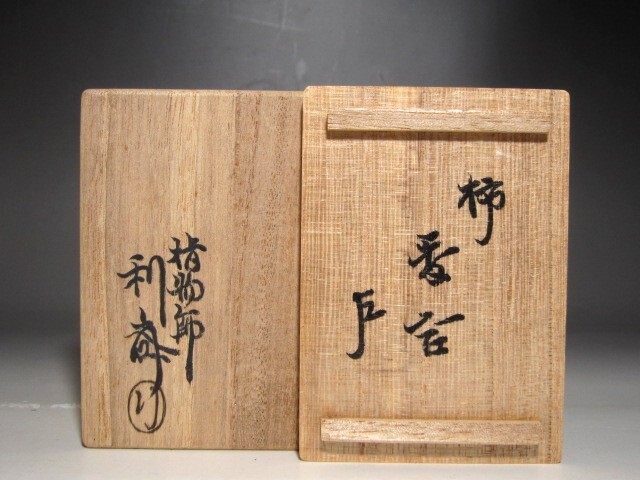 柿
香合
指物師
利斎